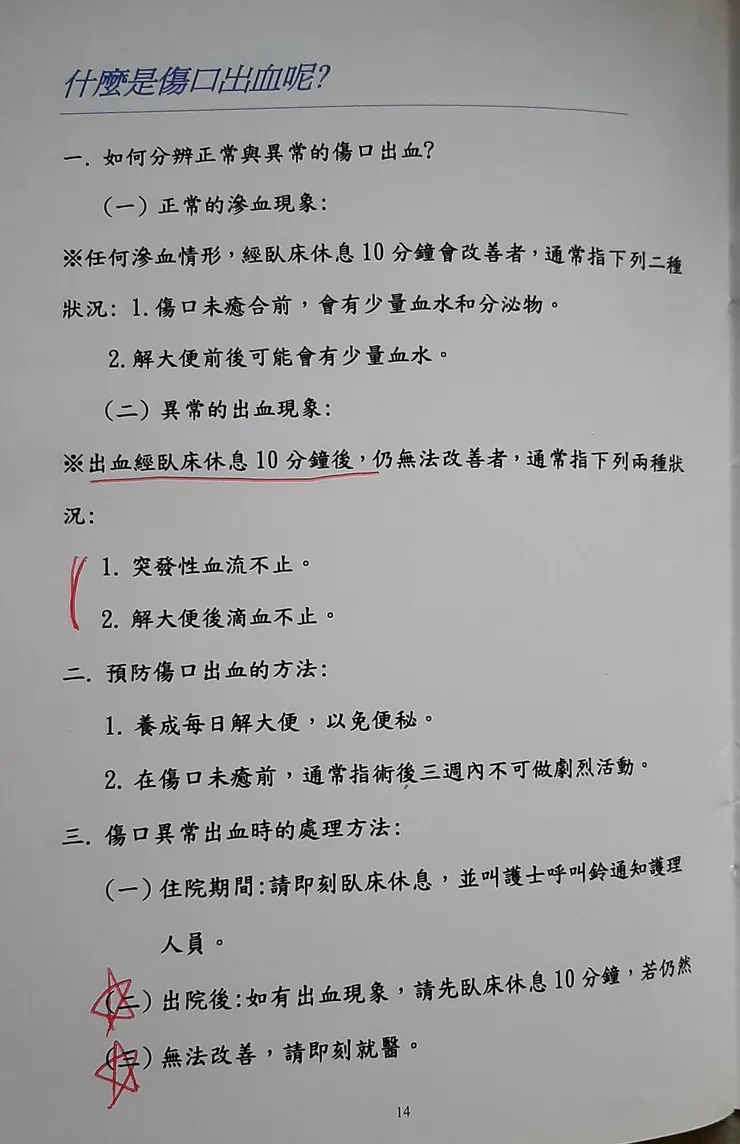 什麼是傷口出血呢?
一. 如何分辨正常與異常的傷口出血?
(一) 正常的滲血現象:
※任何滲血情形,經臥床休息10分鐘會改善者,通常指下列二種
狀況: 1.傷口未癒合前,會有少量血水和分泌物。
2.解大便前後可能會有少量血水。
(二) 異常的出血現象:
※出血經臥床休息10分鐘後,仍無法改善者,通常指下列兩種狀
況:
1. 突發性血流不止。
2. 解大便後滴血不止。
二. 預防傷口出血的方法:
1. 養成每日解大便,以免便秘。
2. 在傷口未癒前,通常指術後三週內不可做劇烈活動。
三. 傷口異常出血時的處理方法:
(一) 住院期間:請即刻臥床休息,並叫護士呼叫鈴通知護理
人員。
(二) 出院後:如有出血現象,請先臥床休息10分鐘,若仍然
(三) 無法改善,請即刻就醫。
14